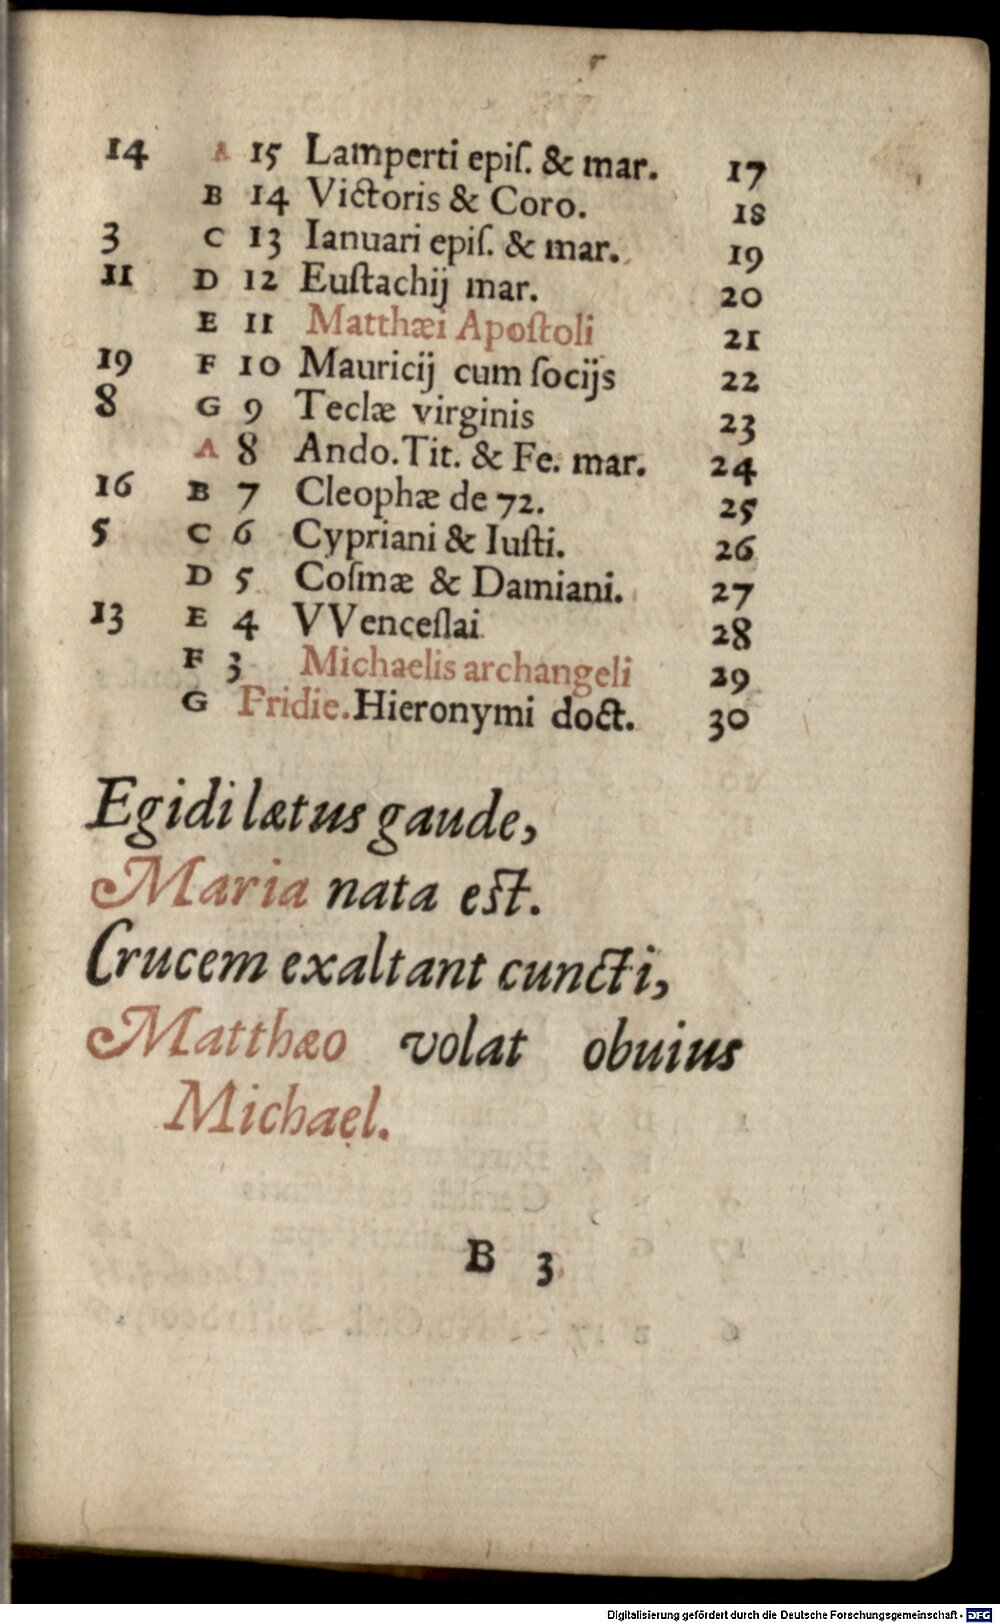 14 A 15 Lamperti epiſ. & mar. 17
B 14 Victoris & Coro. 18
3 C 13 Ianuari epiſ. & mar. 19
11 D 12 Euſtachij mar. 20
E 11 Matthæi Apoſtoli 21
19 F 10 Mauricij cum ſocijs 22
8 G 9 Teclæ virginis 23
A 8 Ando. Tit. & Fe. mar. 24
16 B 7 Cleophæ de 72. 25
5 C 6 Cypriani & Iuſti. 26
D 5 Coſmæ & Damiani. 27
13 E 4 VVenceſlai 28
F 3 Michaelis archangeli 29
G Pridie. Hieronymi doct. 30
Egidi lætus gaude,
Maria nata eſt.
Crucem exaltant cuncti,
Matthæo volat obuius
Michael.
B 3
Digitalisierung gefördert durch die Deutsche Forschungsgemeinschaft - DFG